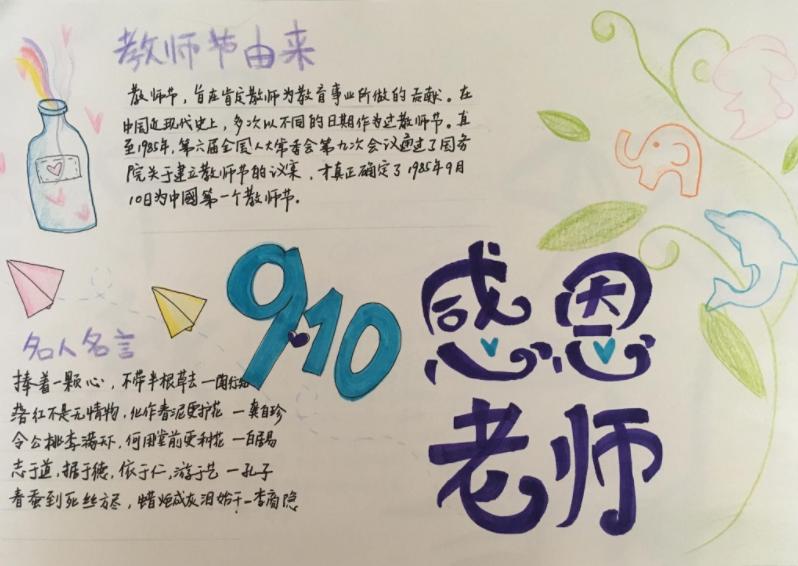 教师节由来
教师节，旨在肯定教师为教育事业所做的贡献。在
中国近现代史上，多次以不同的日期作为过教师节。直
至1985年，第六届全国人大常委会第九次会议通过了国务
院关于建立教师节的议案，才真正确定了1985年9月
10日为中國第一个教师节。
9.10
感恩
老师
名人名言
捧着一颗心，不带半根草去—陶行知
落红不是无情物，化作春泥更护花—龚自珍
令公桃李满天下，何用堂前更种花—白居易
志于道，据于德，依于仁，游于艺—孔子
春蚕到死丝方尽，蜡炬成灰泪始干—李商隐